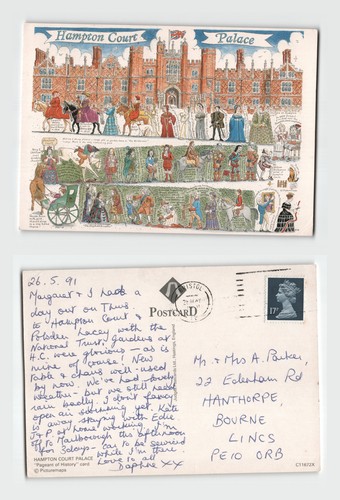 Hampton Court Palace
26.5.91
Margaret & I had a
day out on Thurs
to Hampton Court &
Polesden Lacey with the
National Trust. Gardens at
H.C. were glorious - as is
mine of course! New
table & chairs well used
by now. We've had lovely
weather - but we still need
rain badly. I don't fancy
open air swimming yet. Kate
is away staying with Edie
J & P. at home working. I'm
off to Marlborough this afternoon
for 3 days - car to be serviced
while I'm there.
Love to all
Daphne xx
HAMPTON COURT PALACE
"Pageant of History" card
© Picturemaps
POSTCARD
Ltd., Hastings, England
BRISTOL
MAY
17P
Mr & Mrs A. Barker,
22 Edenham Rd
HANTHORPE,
BOURNE
LINCS
PE10 ORB
C11673X